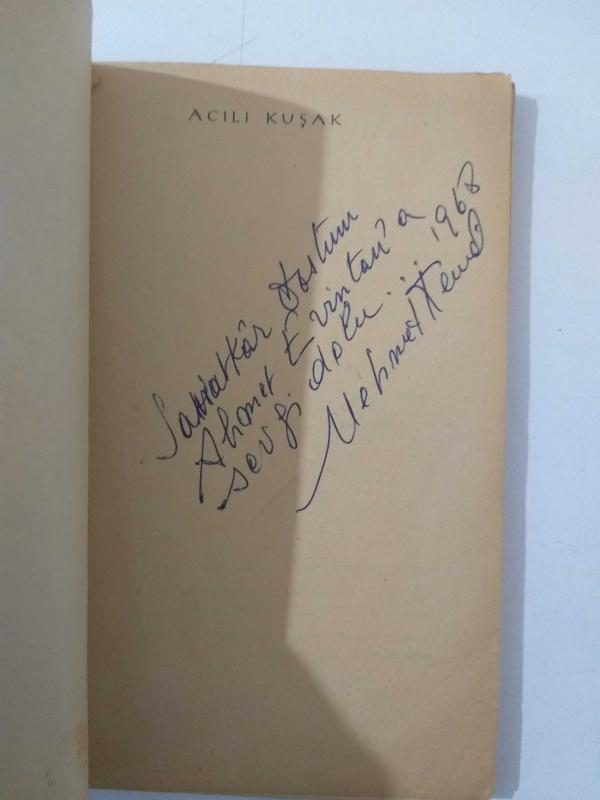 ACILI KUŞAK
Sanatkâr Dostum
Ahmet Evintan'a
sevgi dolu... 1968
Mehmet Kemal